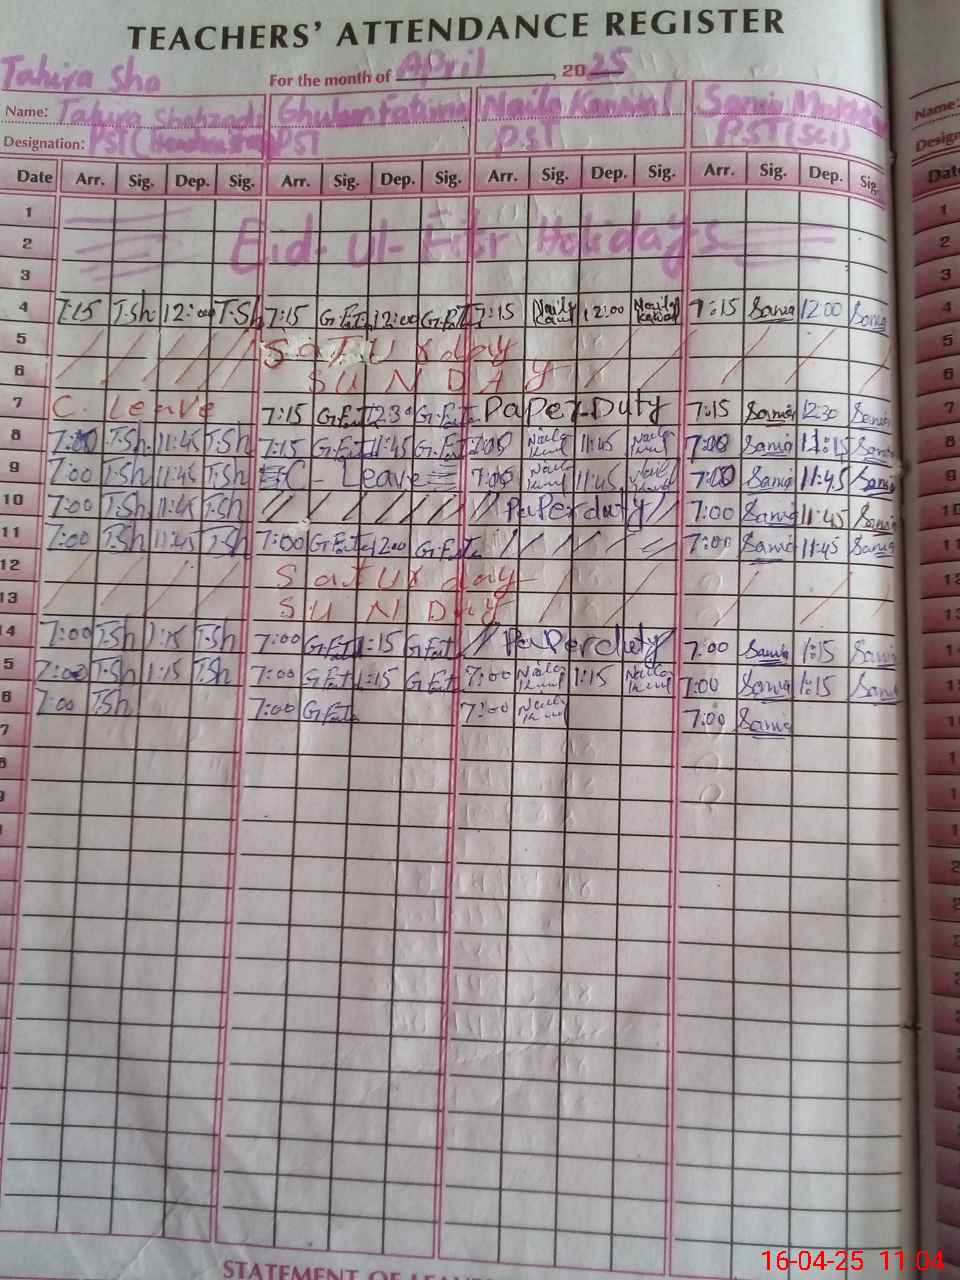 TEACHERS' ATTENDANCE REGISTER
Tahira Sha
For the month of April, 2025
Name: Tahira Shahzadi Ghulam Fatima Naila Kanwal Samia Name:
Designation: PST (Headmistress) PST PST PST (Sci)
Date Arr. Sig. Dep. Sig. Arr. Sig. Dep. Sig. Arr. Sig. Dep. Sig. Arr. Sig. Dep. Sig.
1 1
2 Eid-ul-Fitr Holidays 2
3 3
4 7:15 T.Sh 12:00 T.Sh 7:15 G.Fat 12:00 G.Fat 7:15 Naila Kanwal 12:00 Naila Kanwal 7:15 Samia 12:00 Samia 4
5 Saturday 5
6 SUNDAY 6
7 C. Leave 7:15 G.Fat 12:30 G.Fat Paper Duty 7:15 Samia 12:30 Samia 7
8 7:00 T.Sh 11:45 T.Sh 7:15 G.Fat 11:45 G.Fat 7:00 Naila Kanwal 11:45 Naila Kanwal 7:00 Samia 12:15 Samia 8
9 7:00 T.Sh 11:45 T.Sh C- Leave 7:00 Naila Kanwal 11:45 Naila Kanwal 7:00 Samia 11:45 Samia 9
10 7:00 T.Sh 11:45 T.Sh Paper duty 7:00 Samia 11:45 Samia 10
11 7:00 T.Sh 11:45 T.Sh 7:00 G.Fat 12:00 G.Fat 7:00 Samia 11:45 Samia 11
12 Saturday 12
13 SUNDAY 13
14 7:00 T.Sh 1:15 T.Sh 7:00 G.Fat 1:15 G.Fat Paper duty 7:00 Samia 1:15 Samia
5 7:00 T.Sh 1:15 T.Sh 7:00 G.Fat 1:15 G.Fat 7:00 Naila Kanwal 1:15 Naila Kanwal 7:00 Samia 1:15 Samia
6 7:00 T.Sh 7:00 G.Fat 7:00 Naila Kanwal 7:00 Samia
7
8
9
STATEMENT OF
16-04-25 11:04